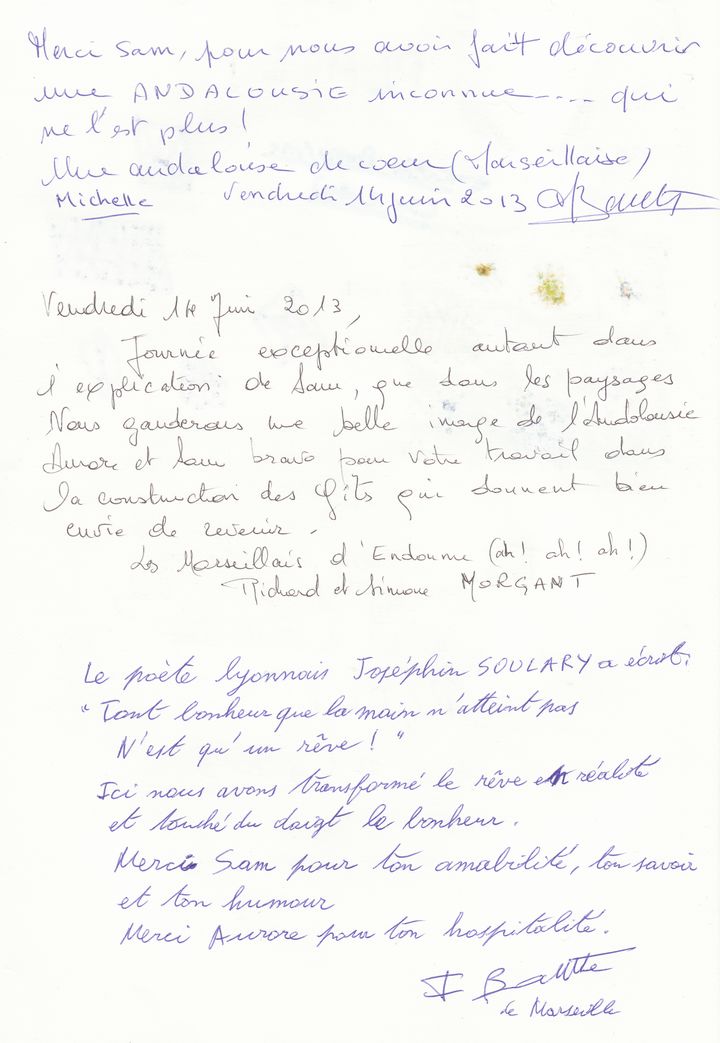 Merci Sam, pour nous avoir fait découvrir
une ANDALOUSIE inconnue---- qui
ne l'est plus!
Une andalouse de coeur (Marseillaise)
Michelle Vendredi 14 juin 2013
Vendredi 14 Juin 2013,
Journée exceptionnelle autant dans
l'explication de Sam, que dans les paysages
Nous garderons une belle image de l'Andalousie
Aurore et Sam bravo pour votre travail dans
la construction des gîts qui donnent bien
envie de revenir.
Les Marseillais d'Endoume (ah! ah! ah!)
Richard et Simone MORGANT
Le poète lyonnais Joséphin SOULARY a écrit:
"Tout bonheur que la main n'atteint pas
N'est qu'un rêve!"
Ici nous avons transformé le rêve en réalité
et touché du doigt le bonheur.
Merci Sam pour ton amabilité, ton savoir
et ton humour
Merci Aurore pour ton hospitalité.
de Marseille